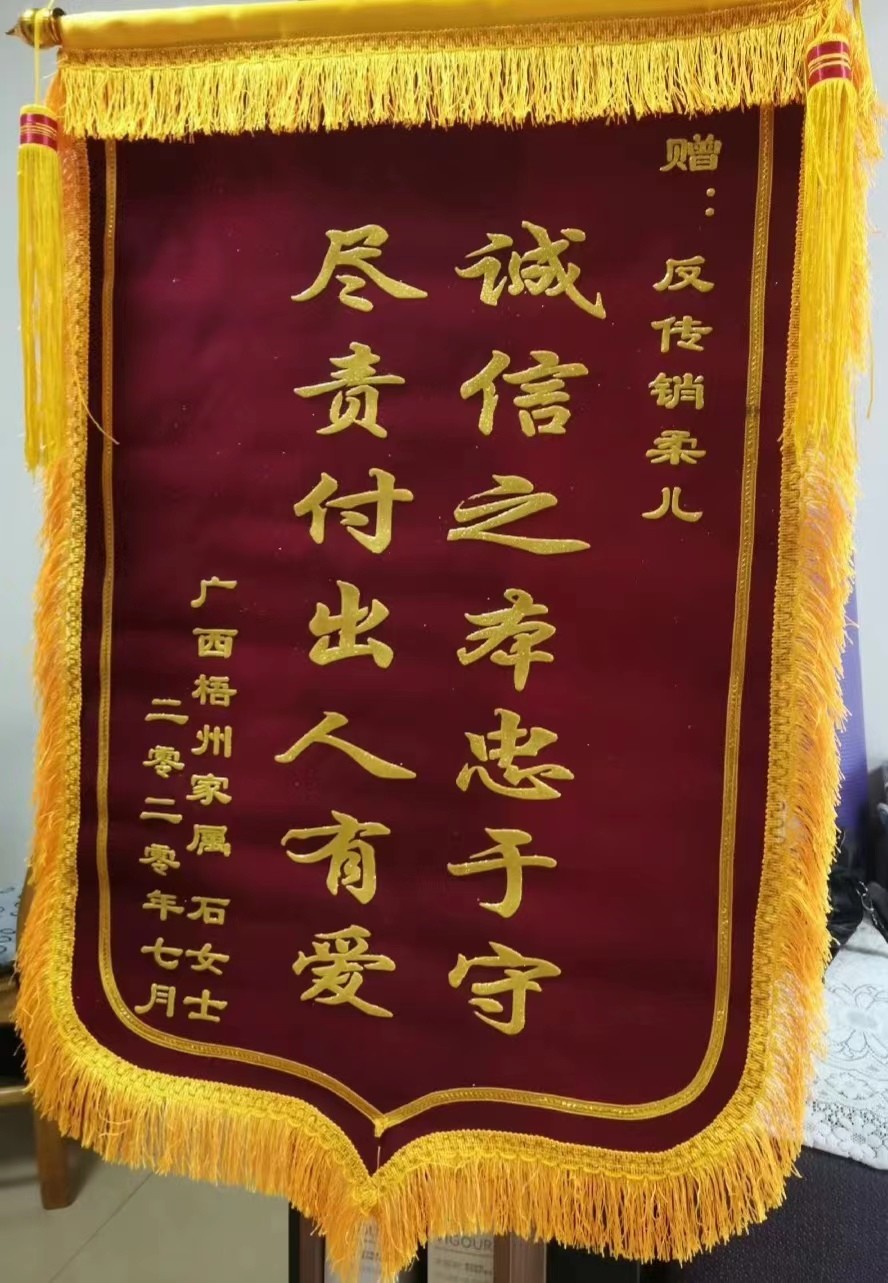 赠：反传销柔儿
诚信之本忠于守
尽责付出人有爱
广西梧州家属 石女士
二零二零年七月
VIGOUR